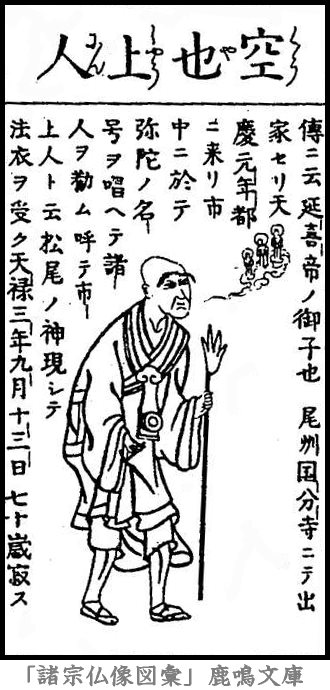 空也上人
くう や しやう にん
傳ニ云延喜帝ノ御子也 尾州国分寺ニテ出
家セリ天
慶元年都
ニ来リ市
中ニ於テ
弥陀ノ名
号ヲ唱ヘテ諸
人ヲ勧ム呼テ市
上人ト云松尾ノ神現シテ
法衣ヲ受ク天禄三年九月十三日七十歳寂ス
「諸宗仏像図彙」鹿鳴文庫